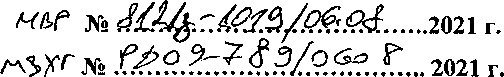 МВР № 812ц3-1019/06.08 2021 г.
МЗХГ № РД09-789/0608 2021 г.